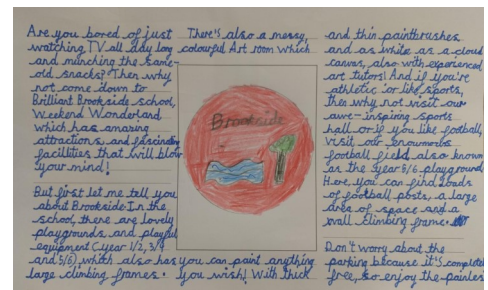 Are you bored of just
watching TV all day long
and munching the same
old snacks? Then why
not come down to
Brilliant Brookside school,
Weekend Wonderland
which has amazing
attractions and fascinating
facillities that will blow
your mind!
But first let me tell you
about Brookside. In the
school, there are lovely
playgrounds, and playful
equipment (year 1/2, 3/4
and 5/6), which also has
large climbing frames.
There's also a messy,
colourful Art room which
Brookside
you can paint anything
you wish! With thick
and thin paintbrushes
and as white as a cloud
canvas, also with experienced
art tutors! And if you're
athletic or like sports,
then why not visit our
awe-inspiring sports
hall or if you like football,
visit our enourmous
football field also known
as the year 5/6 playground
Here, you can find loads
of football posts, a large
area of space and a
small climbing frame.
Don't worry about the
parking because it's complete
free, so enjoy the painless